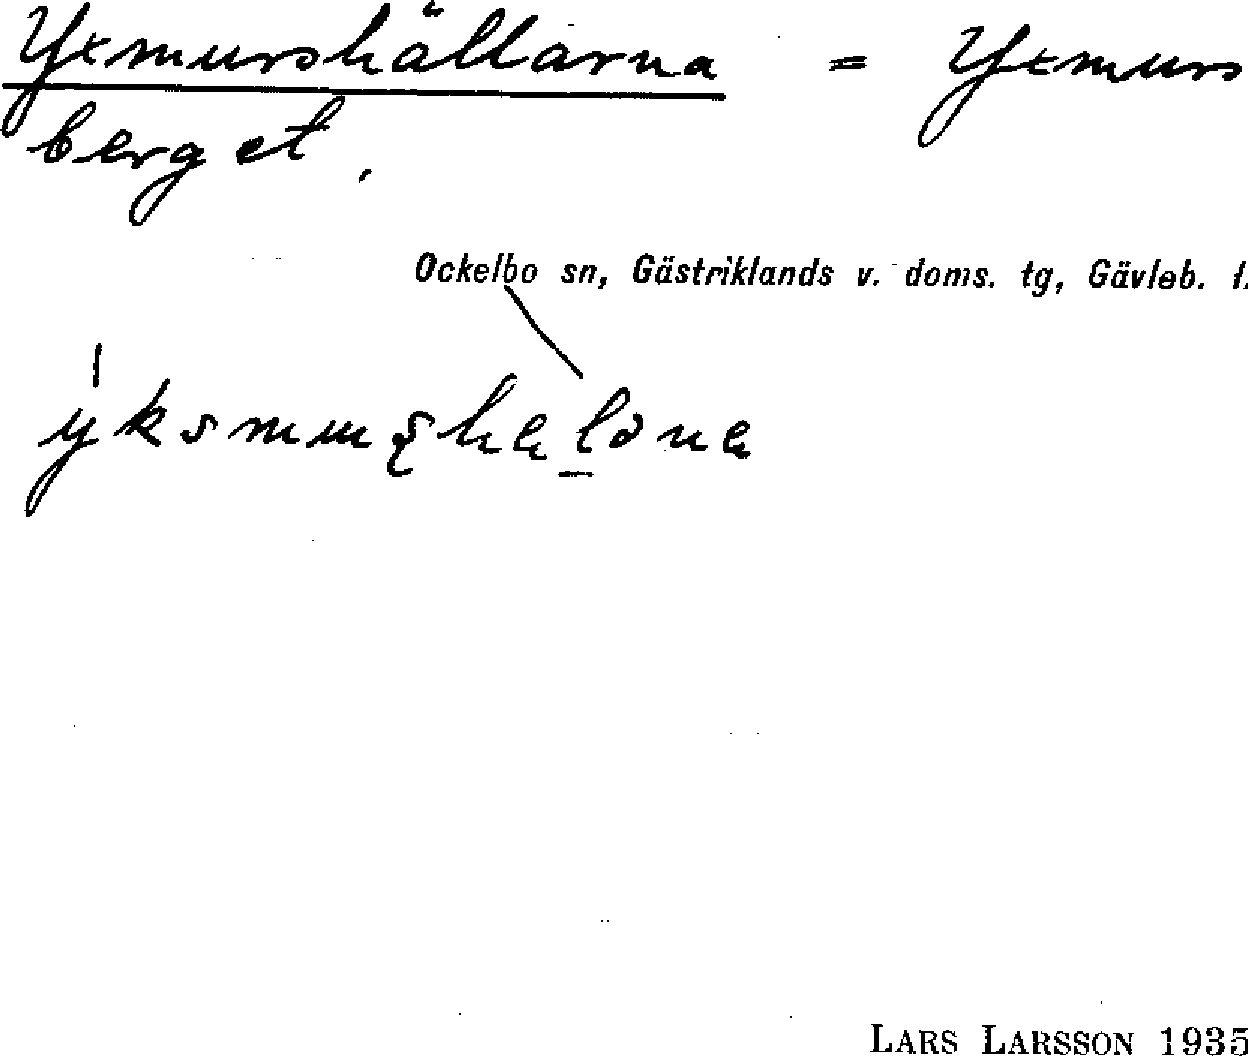 Yxmurshällarna = Yxmurs
berget.
Ockelbo sn, Gästriklands v. doms. tg, Gävleb. l.
LARS LARSSON 1935